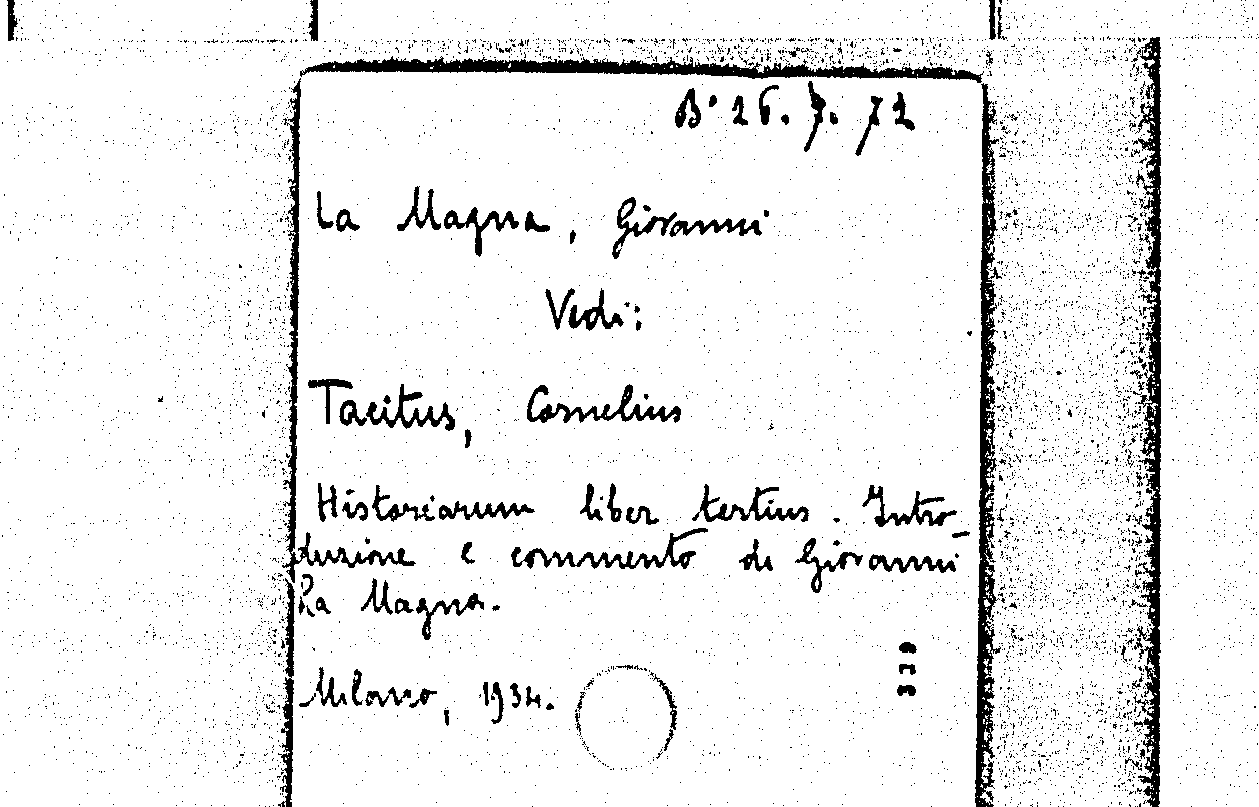 B° 26. 7. 72
La Magna, Giovanni
Vedi:
Tacitus, Cornelius
Historiarum liber tertius. Intro-
duzione e commento di Giovanni
La Magna.
339
Milano, 1934.